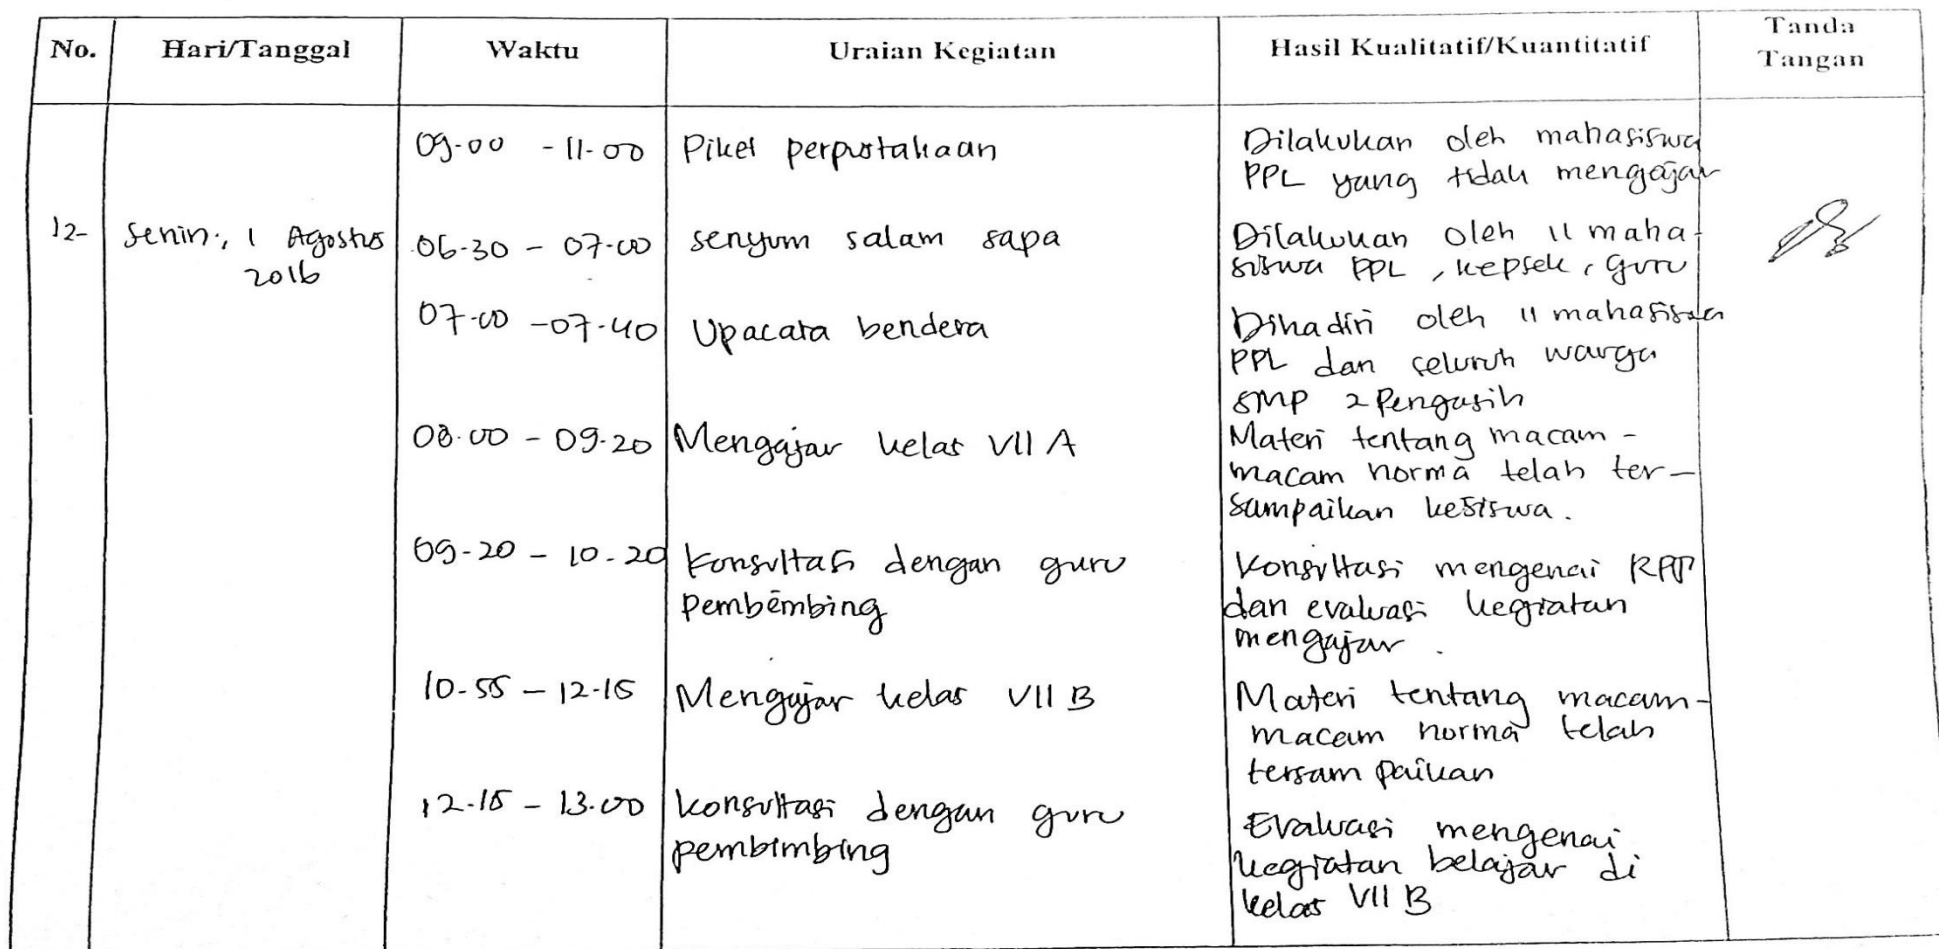 No. Hari/Tanggal Waktu Uraian Kegiatan Hasil Kualitatif/Kuantitatif Tanda Tangan
09.00 - 11.00 Piket perpustakaan Dilakukan oleh mahasiswa
PPL yang tidak mengajar
12- Senin, 1 Agustus 06.30 - 07.00 senyum salam sapa Dilakukan oleh 11 maha-
2016 siswa PPL, kepsek, guru
07.00 - 07.40 Upacara bendera Dihadiri oleh 11 mahasiswa
PPL dan seluruh warga
SMP 2 Pengasih
08.00 - 09.20 Mengajar kelas VII A Materi tentang macam-
macam norma telah ter-
sampaikan kesiswa.
09-20 - 10-20 Konsultasi dengan guru Konsultasi mengenai RPP
pembembing dan evaluasi kegiatan
mengajar.
10-55 - 12-15 Mengajar kelas VII B Materi tentang macam-
macam norma telah
tersampaikan
12-15 - 13.00 konsultasi dengan guru Evaluasi mengenai
pembimbing kegiatan belajar di
kelas VII B